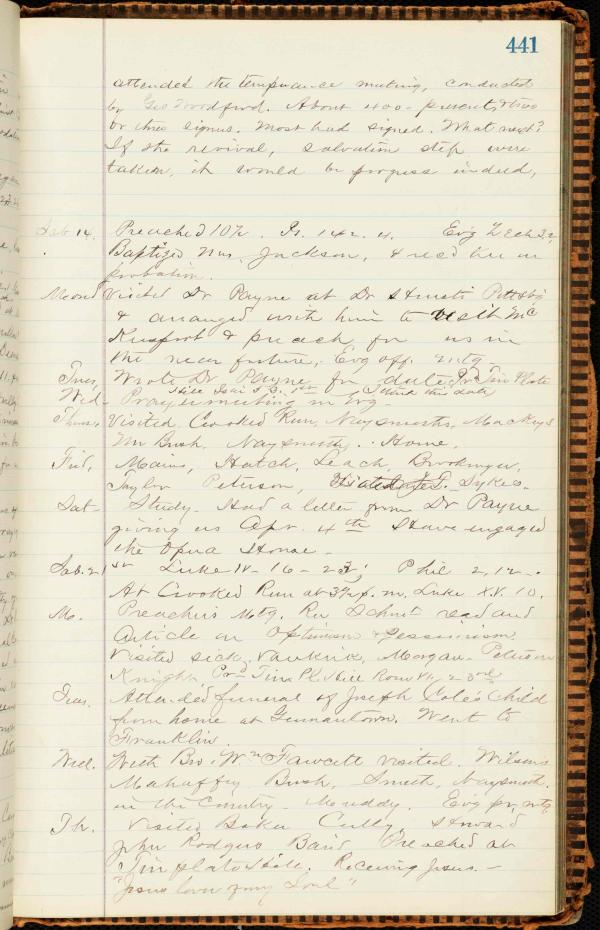 441
attended the temperance meeting, conducted
by Geo Woodford. About 400 - present, & two
or three signers. Most had signed. What next?
If the revival, salvation step were
taken, it would be progress indeed,
Sab 14. Preached 10½. Is. 142. 4. Ev'g Zech 3.2
Baptized Mrs. Jackson, & rec'd her on
probation.
Mond Visited Dr Payne at Dr Pittsbg
& arranged with him to visit Mc
Keesport & preach for us in
the near future, Evg off. mtg.
Tues, Wrote Dr Payne for date. Prd Tin Plate
Hill I think this date
Wed - Prayer meeting in evg -
Thurs, Visited Crooked Run, Naysmiths, Mackeys
Mr Bush, Naysmith. Home,
Frid, Mains, Hatch, Leach,
Taylor Peterson, Sykes.
Sat - Study. Had a letter from Dr Payne
giving us Apr. 4th. Have engaged
the Opera House -
Sab. 21st Luke 16 - 23; Phil 2, 12 -
At Crooked Run at 3½ p. m, Luke XV. 10.
M. Preachers Mtg. Rev read and
Article on Optimism & Pessimism.
Visited sick, Vankirk, Morgan - Peterson
Knight, Prd Tin Pl. Hill
Tues. Attended funeral of Joseph Cole's Child
from home at Germantown. Went to
Franklin.
Wed. With Bro. Wm Fawcett visited. Wilsons
Mahaffey Bush, Smith, Naysmith.
in the Country - Muddy. Evg pr. mtg
Th. Visited Baker Cully
John Rodgers Baird Preached at
Tin plate Hill. Receiving Jesus. -
"Jesus lover of my Soul"